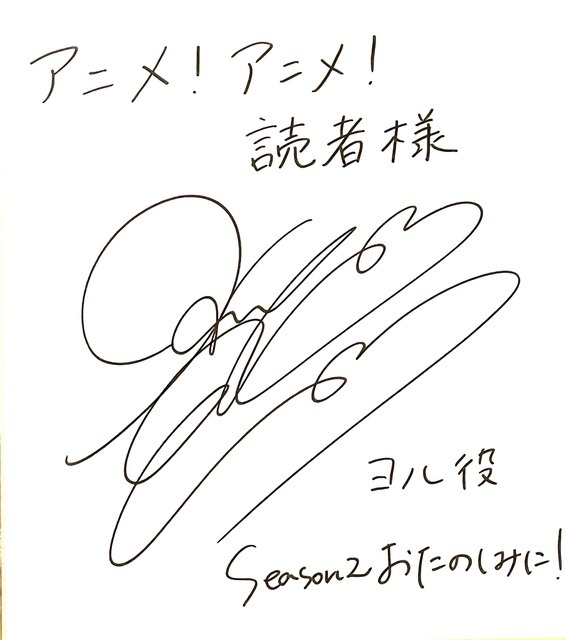 アニメ!アニメ!
読者様
ヨル役
Season2 おたのしみに!